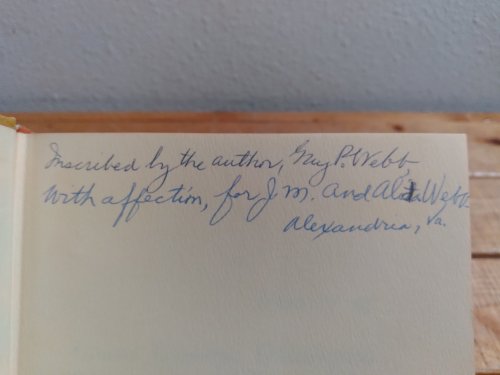 Inscribed by the author, Guy P. Webb,
with affection, for J. M. and Webb
Alexandria, Va.